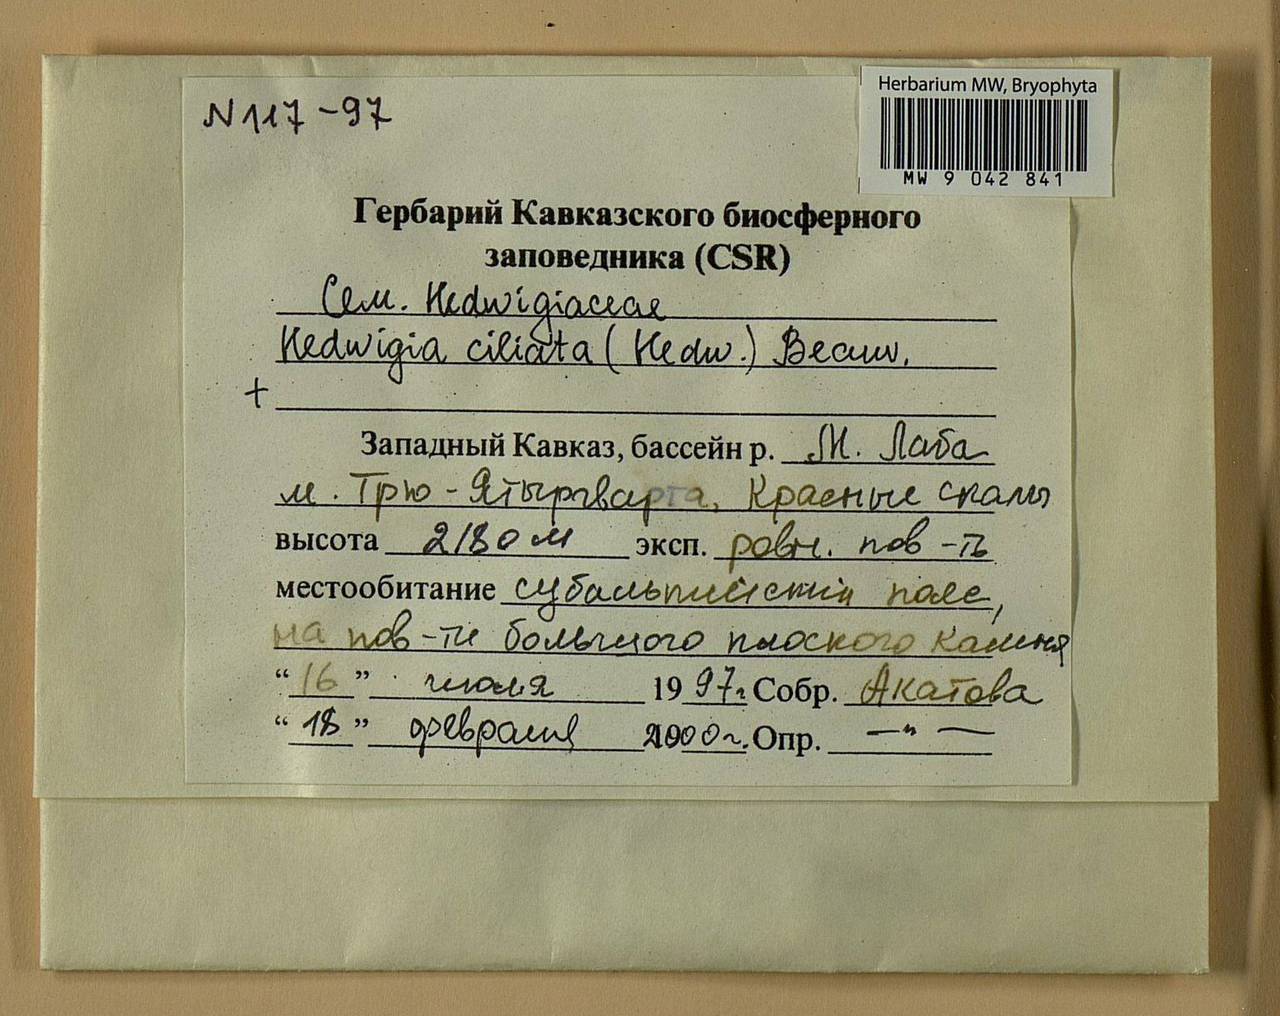 N 117-97
Herbarium MW, Bryophyta
MW 9 042 841
Гербарий Кавказского биосферного
заповедника (CSR)
Сем. Hedwigiaceae
Hedwigia ciliata (Hedw.) Beauv.
+
Западный Кавказ, бассейн р. М. Лаба
м. Трю-Ятыргварта, Красные скалы
высота 2180 м эксп. ровн. пов-ть
местообитание субальпийский пояс,
на пов-ти большого плоского камня
“16” июля 1997г Собр. Акатова
“18” февраля 2000г. Опр. —"—